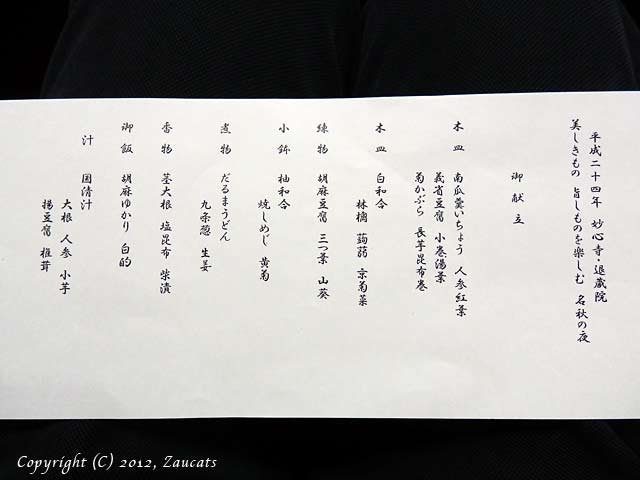 平成二十四年 妙心寺・退蔵院
美しきもの 旨しものを楽しむ 名秋の夜
御献立
木皿 南瓜羹いちょう 人参紅葉
義省豆腐 小巻湯葉
菊かぶら 長芋昆布巻
木皿 白和合
林檎 蒟蒻 京菊菜
練物 胡麻豆腐 三つ葉 山葵
小鉢 柚和合
焼しめじ 黄菊
煮物 だるまうどん
九条葱 生姜
香物 茎大根 塩昆布 柴漬
御飯 胡麻ゆかり 白的
汁 国清汁
大根 人参 小芋
揚豆腐 椎茸
Copyright (C) 2012, Zaucats